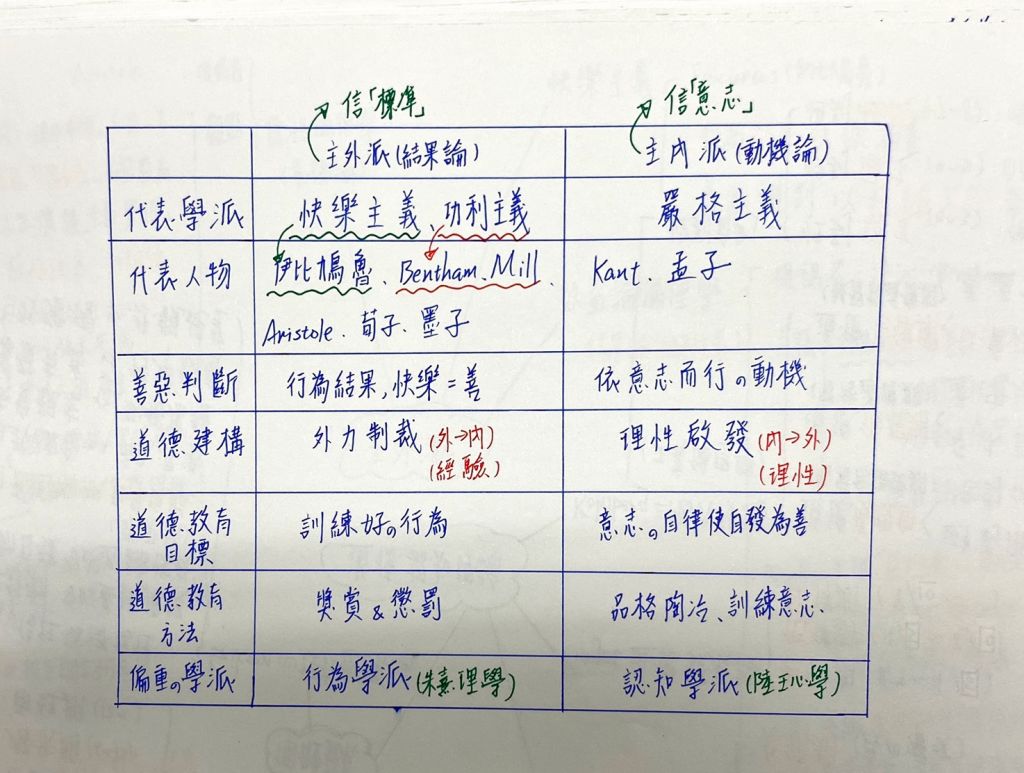 信「標準」
信「意志」
主外派(結果論)
主內派(動機論)
代表學派
快樂主義、功利主義
嚴格主義
代表人物
伊比鳩魯、Bentham、Mill、
Kant、孟子
Aristole、荀子、墨子
善惡判斷
行為結果,快樂=善
依意志而行の動機
道德建構
外力制裁(外→內)
(經驗)
理性啟發(內→外)
(理性)
道德教育
目標
訓練好の行為
意志の自律使自發為善
道德教育
方法
獎賞&懲罰
品格陶冶、訓練意志
偏重の學派
行為學派(朱熹理學)
認知學派(陸王心學)